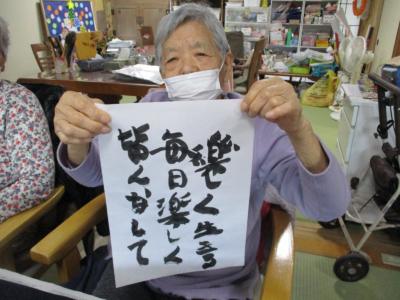 楽しく生きる
毎日楽しく
皆んなして